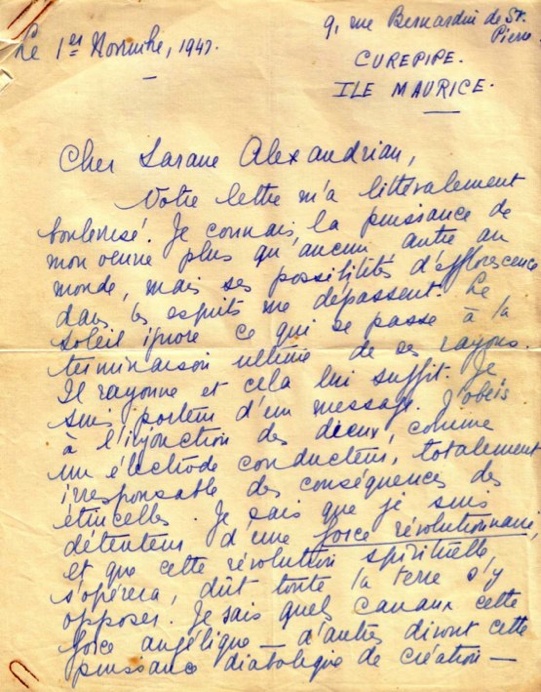 9, rue Bernardin de St.
Pierre
Le 1er Novembre, 1947.
CUREPIPE.
ILE MAURICE.
Cher Sarane Alexandrian,
Votre lettre m'a littéralement
bouleversé. Je connais la puissance de
mon oeuvre plus qu'aucun autre au
monde, mais ses possibilités d'efflorescence
dans les esprits me dépassent. Le
soleil ignore ce qui se passe à la
terminaison ultime de ses rayons.
Il rayonne et cela lui suffit. Je
suis porteur d'un message. J'obéis
à l'injonction des dieux, comme
un électrode conducteur, totalement
irresponsable des conséquences des
étincelles. Je sais que je suis
détenteur d'une force révolutionnaire,
et que cette révolution spirituelle,
s'opérera, dût toute la terre s'y
opposer. Je sais quels canaux cette
force angélique — d'autres diront cette
puissance diabolique de création —